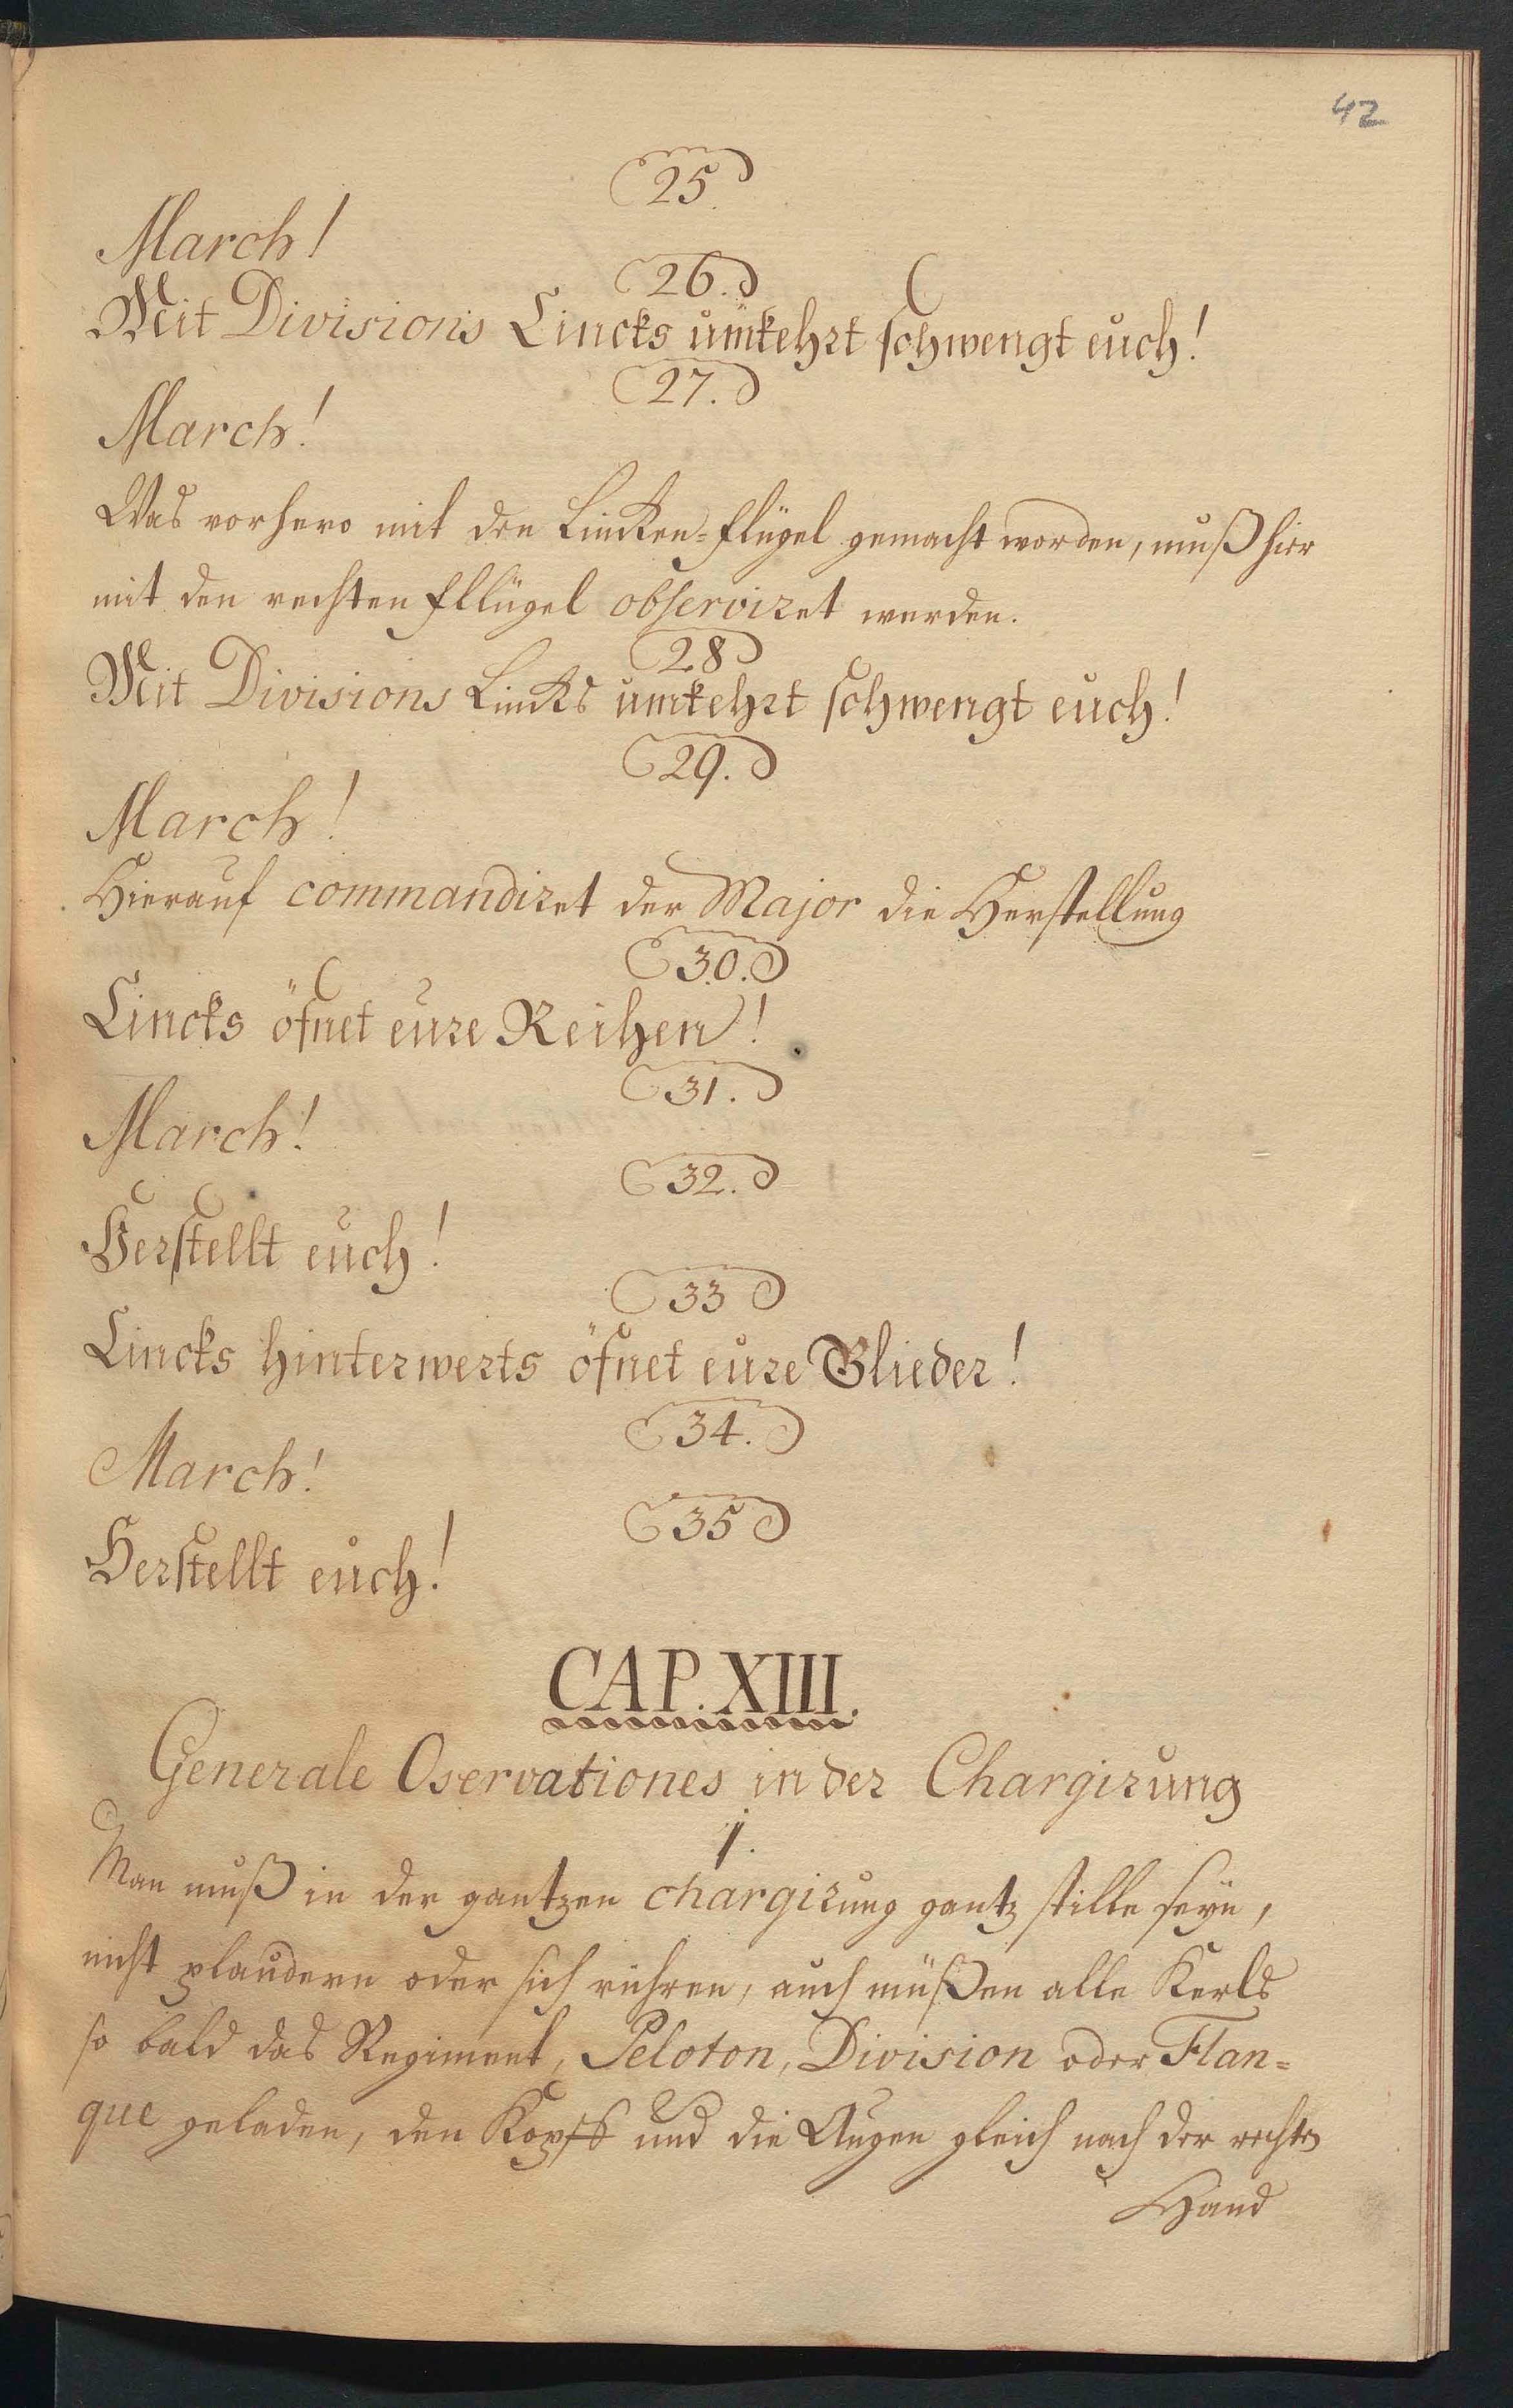 42
25.
March!
26.
Mit Divisions Lincks umkehrt schwengt euch!
27.
March!
Was vorhero mit den Lincken-Flügel gemacht worden, muß hier
mit den rechten Fllügel observiret werden.
28
Mit Divisions Lincks umkehrt schwengt euch!
29.
March!
Hierauf commandiret der Major die Herstellung
30.
Lincks öfnet eure Reihen!
31.
March!
32.
Herstellt euch!
33
Lincks hinterwerts öfnet eure Glieder!
34.
March!
35
Herstellt euch!
CAP. XIII.
Generale Oservationes in der Chargirung
1.
Man muß in der gantzen chargirung gantz stille seyn,
nicht plaudern oder sich rühren, auch müßen alle Kerls
so bald das Regiment, Peloton, Division oder Flan-
que geladen, den Kopff und die Augen gleich nach der rechten
Hand